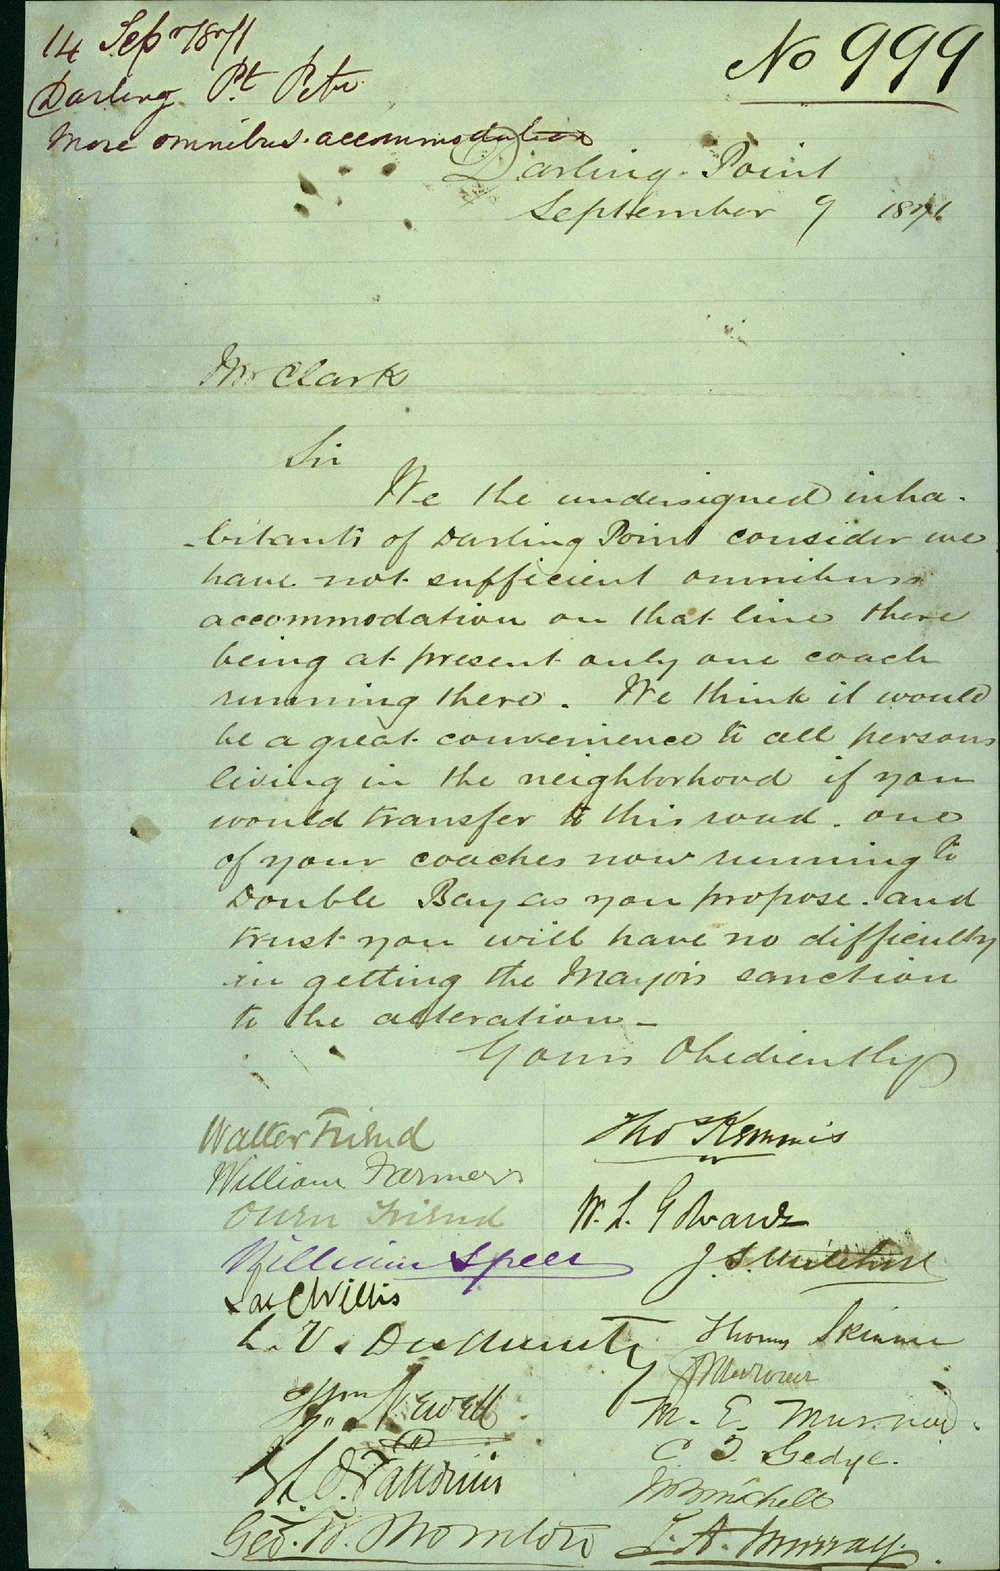 14 Sepr 1871
No 999
Darling Pt Petn
More omnibus accommodation
Darling Point
September 9 1871
Mr Clark
Sir
We the undersigned inha-
-bitants of Darling Point consider we
have not sufficient omnibus
accommodation on that line there
being at present only one coach
running there. We think it would
be a great convenience to all persons
living in the neighborhood if you
would transfer to this road one
of your coaches now running to
Double Bay as you propose and
trust you will have no difficulty
in getting the Mayors sanction
to the alteration -
Yours Obediently
Walter Friend
Thos Kemmis
William Farmer
Owen Friend
W. L. Edwards
William Speer
J. S. Mitchell
Willis
L. V.
Thomas Skinner
Wm Newell
M. E.
C. T. Gedye.
Mitchell
Geo. W. Thornton
T. A. Murray.